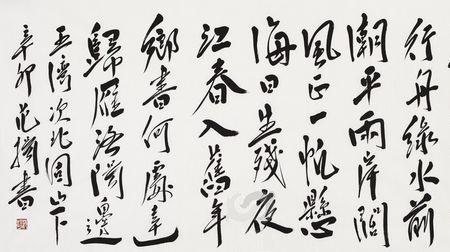 行舟綠水前
潮平兩岸闊
風正一帆懸
海日生殘夜
江春入舊年
鄉書何處達
歸雁洛陽邊
王灣次北固山下
辛卯范書